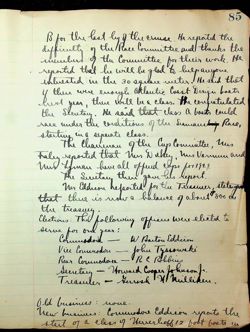 85
B for the last leg of the cruise. He reported the
difficulty of the Race Committee and thanks the
members of the Committee for their work. He
reported that he will be glad to help anyone
interested in the 30 square meter. He said that
if there were enough Atlantic Coast Design boats
next year, there will be a class. He congratulated
the Secretary. He said that boats could
race under the conditions of the Race,
starting in a separate class.
The Chairman of the Cup Committee, Mr.
reported that Mr. Mr. and
Mr. have all offered cups for
The Secretary then gave his report.
Mr. Eddison reported for the Treasurer, stating
that there is now a balance of about $ in
the treasury.
Elections. The following officers were elected to
serve for one year:
Commodore — W. Barton Eddison
Vice Commodore — John
Rear Commodore — R. C. Robbins
Secretary — Howard Cooper Johnson, Jr.
Treasurer — Gerrish H. Milliken.
Old business: none.
New business: Commodore Eddison reports the
start of a class of Herreshoff boats